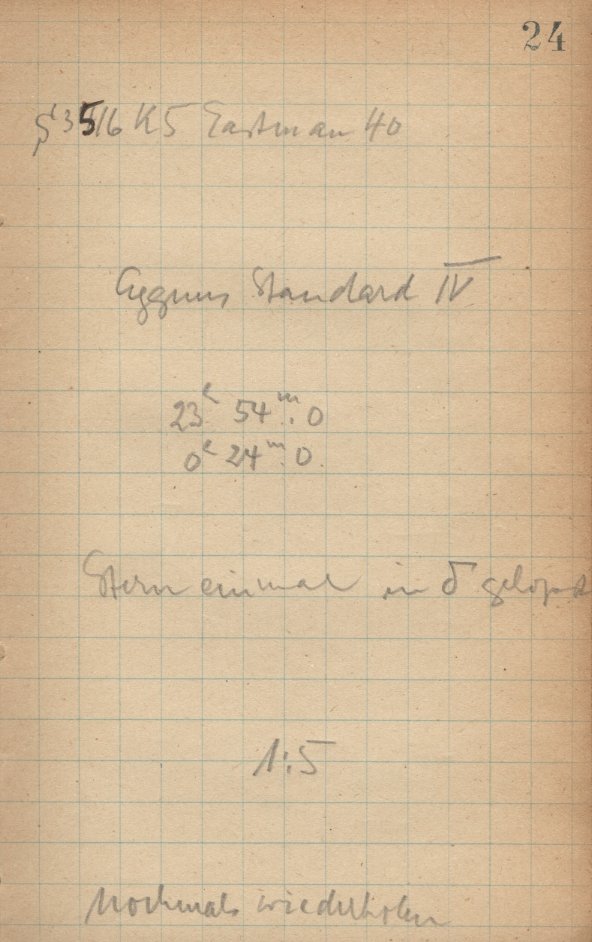 24
516 K5 Eastman 40
Cygnus Standard IV
23ʰ 54ᵐ.0
0ʰ 24ᵐ.0
Stern einmal in δ
1:5
Nochmals wiederholen